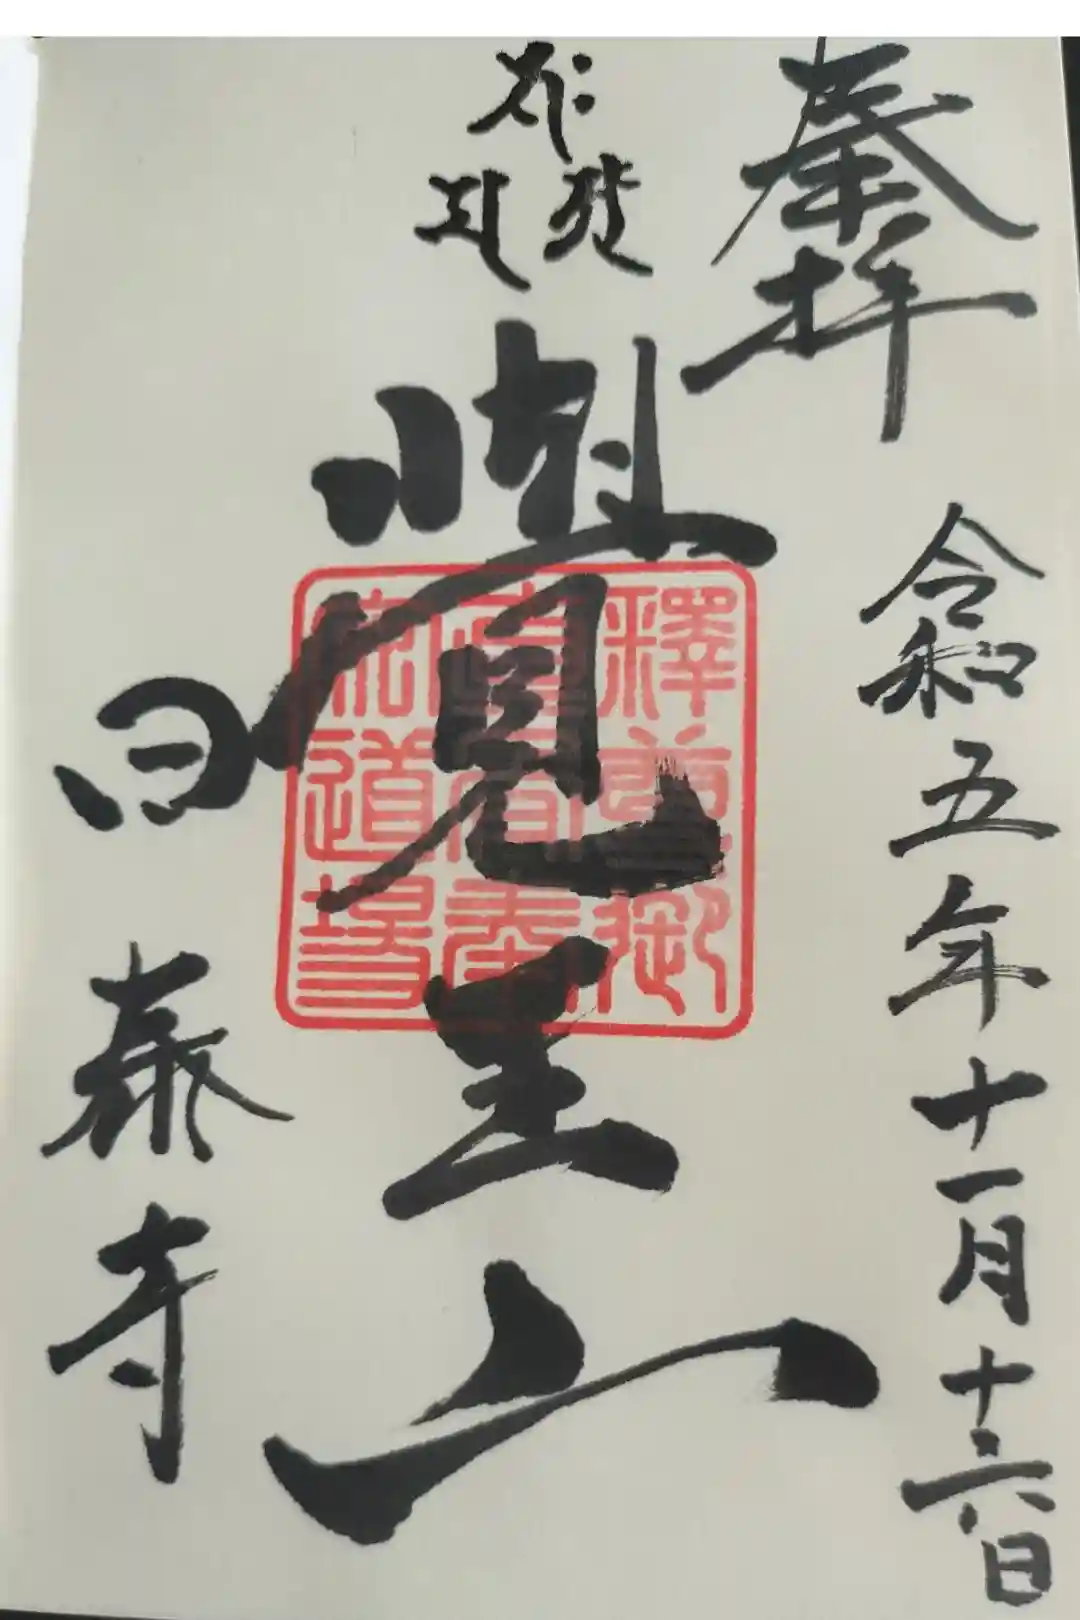 奉拝
令和五年十一月十六日
覺王山
日泰寺
釋尊御
真身奉
安道場